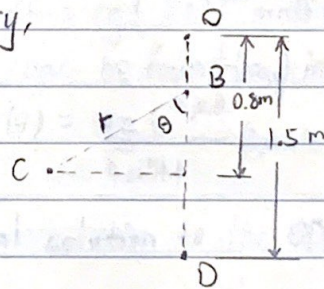 y,
O
B
0.8m
r
θ
1.5 m
C
D